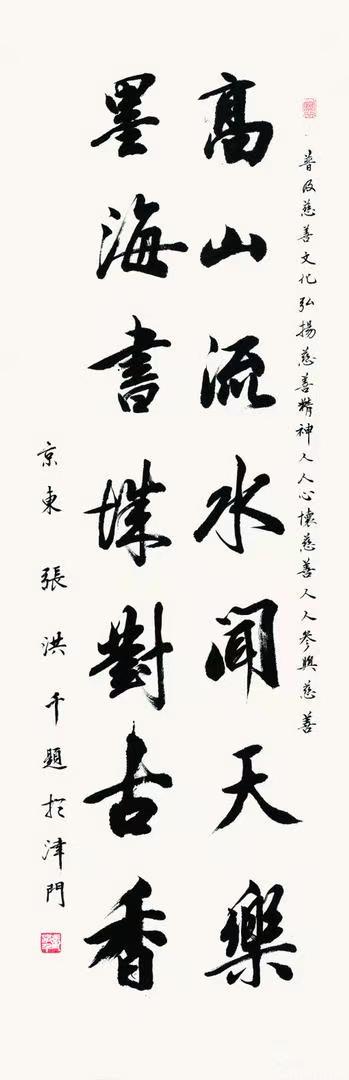 普及慈善文化弘揚慈善精神人人心懷慈善人人參與慈善
髙山流水聞天樂
墨海書城對古香
京東張洪千題於津門